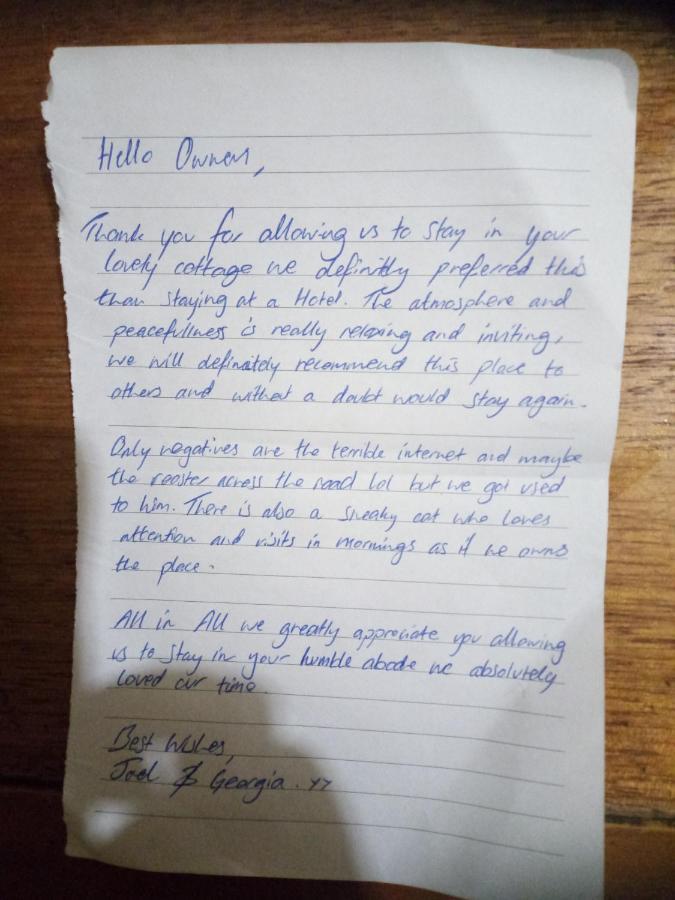 Hello Owners,
Thank you for allowing us to stay in your
lovely cottage we definitly preferred this
than staying at a Hotel. The atmosphere and
peacefullness is really relaxing and inviting,
we will definately recommend this place to
others and without a doubt would stay again.
Only negatives are the terrible internet and maybe
the rooster across the road lol but we got used
to him. There is also a sneaky cat who loves
attention and visits in mornings as if he owns
the place.
All in All we greatly appreciate you allowing
us to stay in your humble abode we absolutely
loved our time.
Best Wishes,
Joel & Georgia. xx